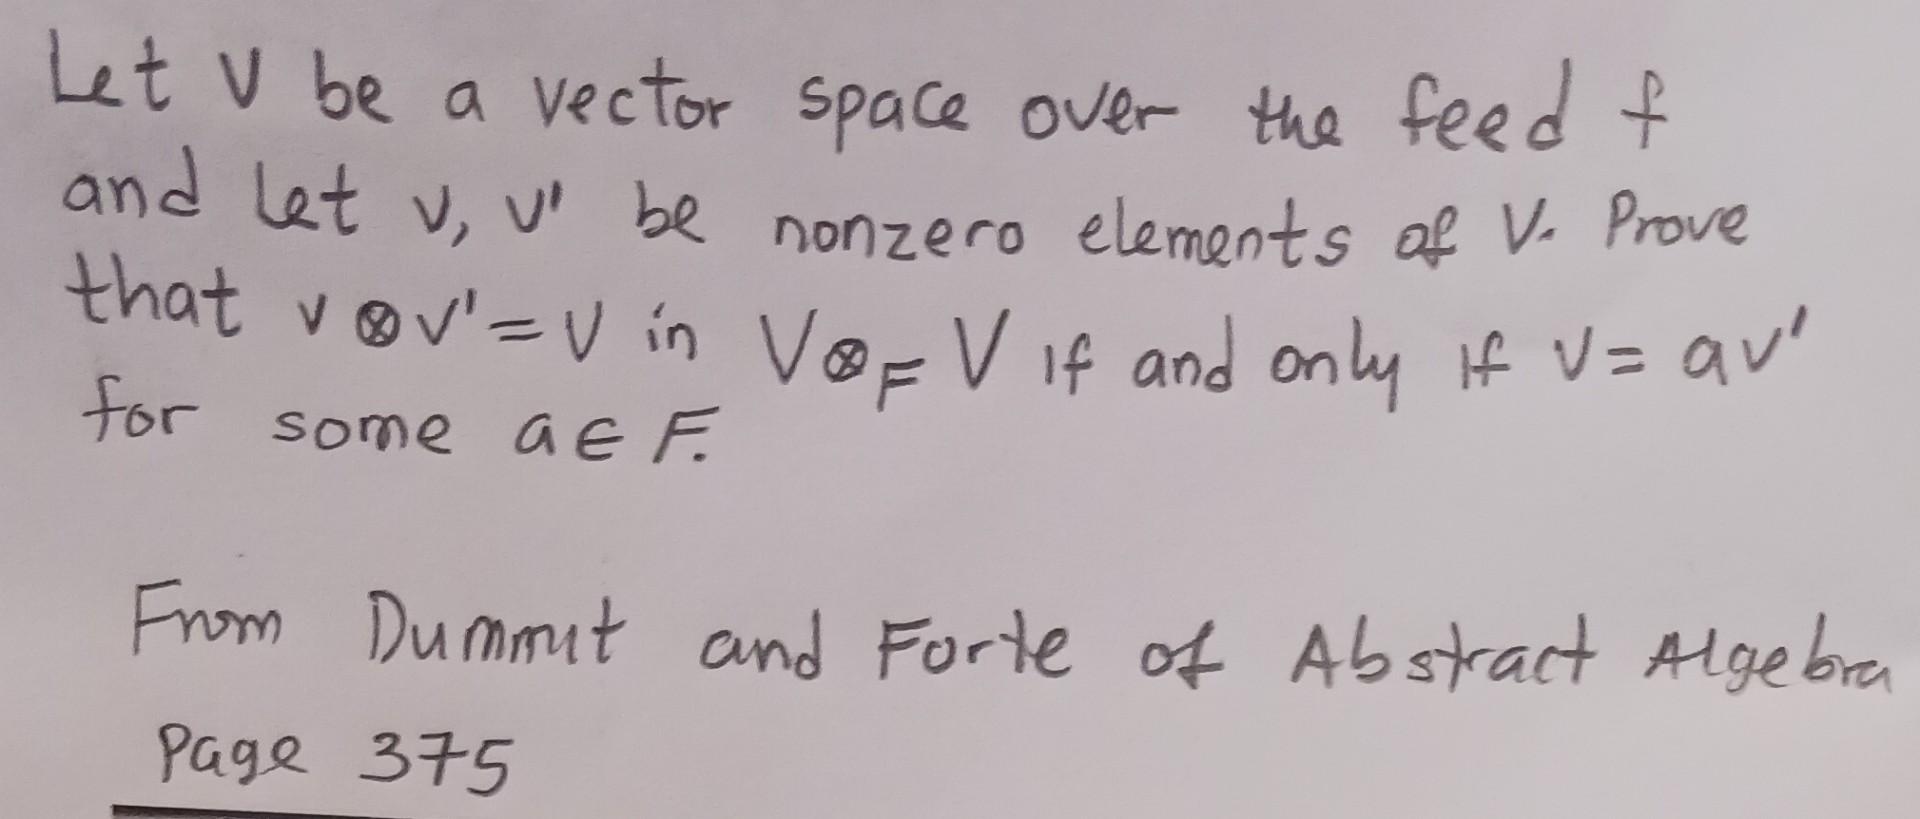 Let V be a vector space over the feed f
and let v, v' be nonzero elements of V. Prove
that v⊗v'=v in V⊗_F V if and only if v = av'
for some a∈F.
From Dummit and Forte of Abstract Algebra
Page 375